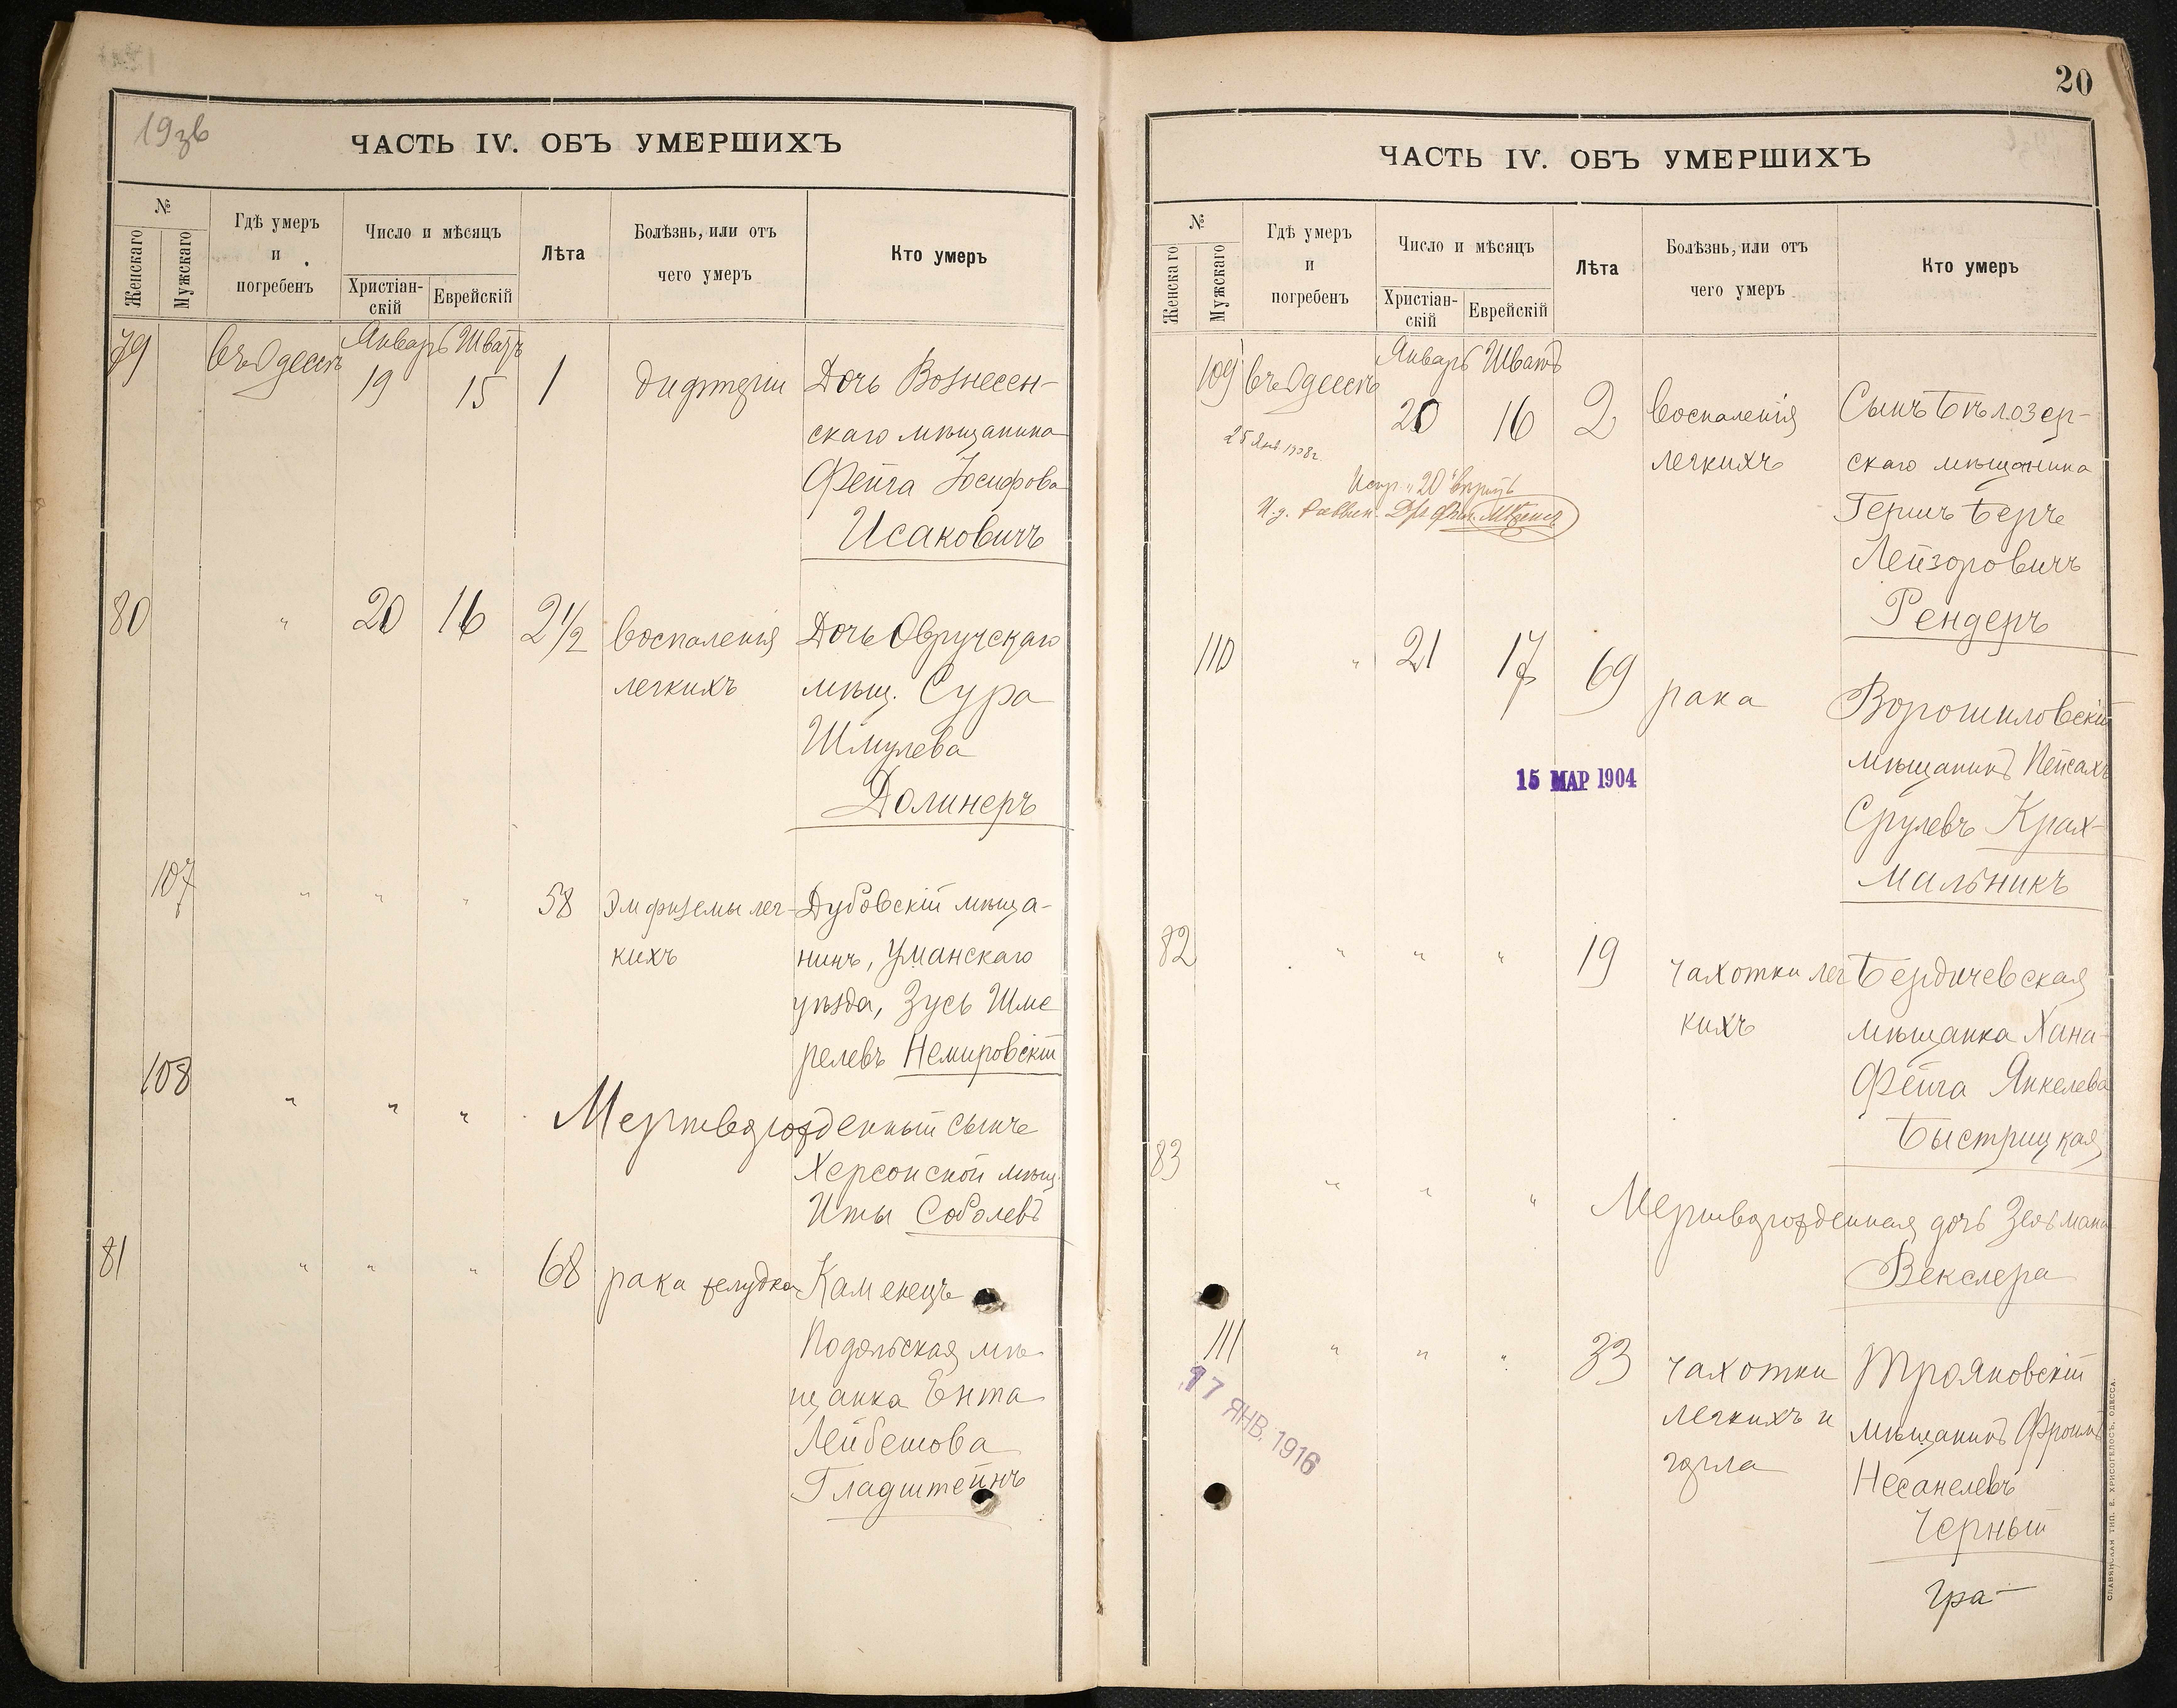 19зв
ЧАСТЬ IV. ОБЪ УМЕРШИХЪ
№
Женскаго
Мужскаго
Гдѣ умеръ
и
погребенъ
Число и мѣсяцъ
Христіан-
скій
Еврейскій
Лѣта
Болѣзнь, или отъ
чего умеръ
Кто умеръ
79 въ Одессѣ Январь Шватъ
19 15 1 дифтеріи Дочь Вознесен-
скаго мѣщанина
Фейга Іосифова
Исаковичъ
80 " 20 16 2 1/2 воспаленія Дочь Овручскаго
легкихъ мѣщ. Сура
Шмулева
Долинеръ
107 " " " 58 Эмфиземы лег- Дубовскій мѣща-
кихъ нинъ, Уманскаго
уѣзда, Зусь Шме
релевъ Немировскій
108 " " " Мертворожденный сынъ
Херсонской мѣщ.
Иты Соболевъ
81 " " " 68 рака желудка Каменецъ
Подольская мѣ
щанка Ента
Лейбешова
Гладштейнъ
20
ЧАСТЬ IV. ОБЪ УМЕРШИХЪ
№
Женскаго
Мужскаго
Гдѣ умеръ
и
погребенъ
Число и мѣсяцъ
Христіан-
скій
Еврейскій
Лѣта
Болѣзнь, или отъ
чего умеръ
Кто умеръ
109 въ Одессѣ Январь Шватъ
20 16 2 воспаленія Сынъ Бѣлозер-
легкихъ скаго мѣщанина
25 Янв. 1908 г.
Испр. "20" вѣрить
И. д. Раввин.
Гершъ Беръ
Лейзоровичъ
Рендеръ
110 " 21 17 69 рака Ворошиловскій
мѣщанинъ Пейсахъ
15 МАР 1904
Срулевъ Крах-
мальникъ
82 " " " 19 чахотки лег Бердичевская
кихъ мѣщанка Хана-
Фейга Янкелева
Быстрицкая
83 " " " Мертворожденная дочь Зельмана
Векслера
111 " " " 33 чахотки Трояновскій
легкихъ и мѣщанинъ Фроимъ
горла Несанелевъ
Черный
17 ЯНВ. 1916
гра-
СЛАВЯНСКАЯ ТИП. Е. ХРИСОГЕЛОСЪ, ОДЕССА.